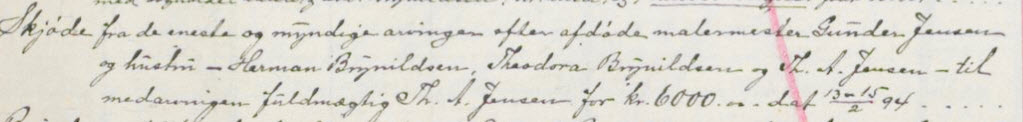 Skjøde fra de eneste og myndige arvinger efter afdøde malermester Gunder Jensen
og hustru – Herman Brynildsen, Theodora Brynildsen og Th. A. Jensen – til
medarvingen fuldmægtig Th. A. Jensen for kr. 6000.00. dat 13–15/2 94 . . . . .